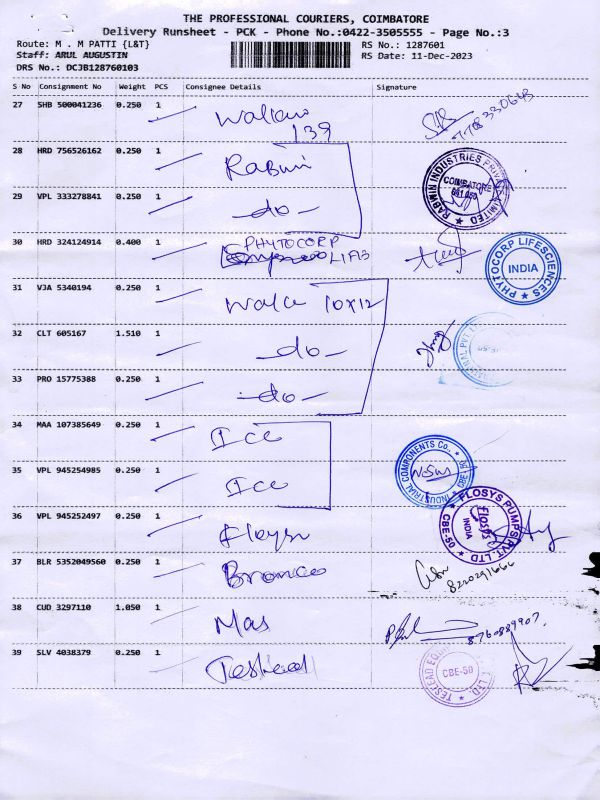 THE PROFESSIONAL COURIERS, COIMBATORE
Delivery Runsheet - PCK - Phone No.:0422-3505555 - Page No.:3
Route: M . M PATTI {L&T}
RS No.: 1287601
Staff: ARUL AUGUSTIN
RS Date: 11-Dec-2023
DRS No.: DCJB128760103
S No Consignment No Weight PCS Consignee Details Signature
27 SHB 500041236 0.250 1
139
28 HRD 756526162 0.250 1 Rabwin
RABWIN INDUSTRIES PRIVATE LIMITED
COIMBATORE
29 VPL 333278841 0.250 1 -do-
30 HRD 324124914 0.400 1 PHYTOCORP
PHYTOCORP LIFESCIENCES
INDIA
31 VJA 5340194 0.250 1 10x12
32 CLT 605167 1.510 1 -do-
33 PRO 15775388 0.250 1 -do-
34 MAA 107385649 0.250 1 Ice
INDUSTRIAL COMPONENTS Co.,
35 VPL 945254985 0.250 1 Ice
36 VPL 945252497 0.250 1
FLOSYS PUMPS PVT. LTD
CBE-50
Flosys
INDIA
37 BLR 5352049560 0.250 1 Bronco
38 CUD 3297110 1.050 1 Mas
8760889907
39 SLV 4038379 0.250 1 Teslead
CBE-50